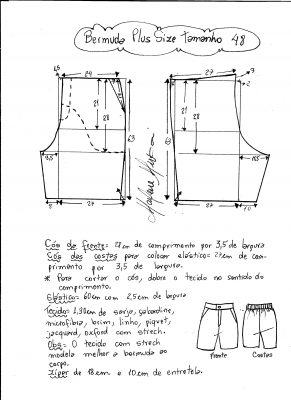 Bermuda Plus Size Tamanho 48
1,5
24
27
3
2
21
28
21
28
63
3,5
27
27
10
Cós da frente: 27cm de comprimento por 3,5 de largura
Cós das costas para colocar elástico: 27cm de com-
primento por 3,5 de largura.
* Para cortar o cós, dobre o tecido no sentido do
comprimento.
Elástico: 60cm com 2,5cm de largura
Tecido: 1,30cm de sarja, gabardine,
microfibra, brim, linho, piquet,
jacquard, oxford com strech.
Obs: O tecido com strech
modela melhor a bermuda ao
corpo.
Zíper de 18cm e 10cm de entretela.
Frente
Costas